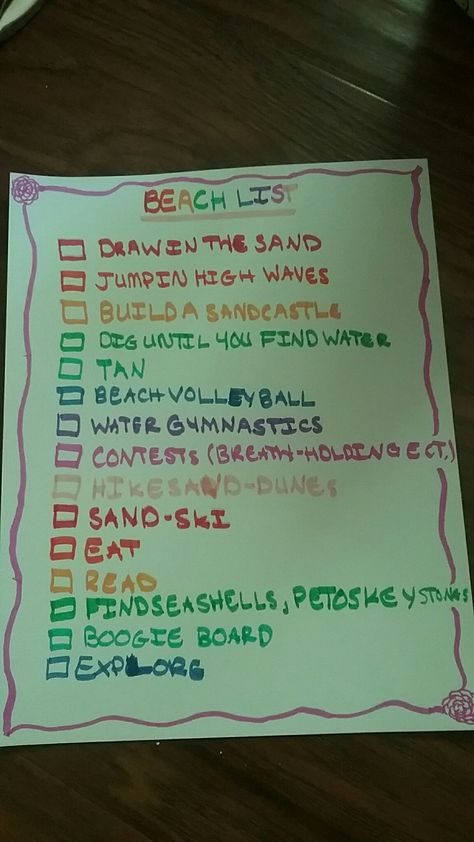 BEACH LIST
DRAW IN THE SAND
JUMP IN HIGH WAVES
BUILD A SANDCASTLE
DIG UNTIL YOU FIND WATER
TAN
BEACH VOLLEYBALL
WATER GYMNASTICS
CONTESTS (BREATH-HOLDING ECT.)
HIKE SAND-DUNES
SAND-SKI
EAT
READ
FIND SEASHELLS, PETOSKEY STONES
BOOGIE BOARD
EXPLORE